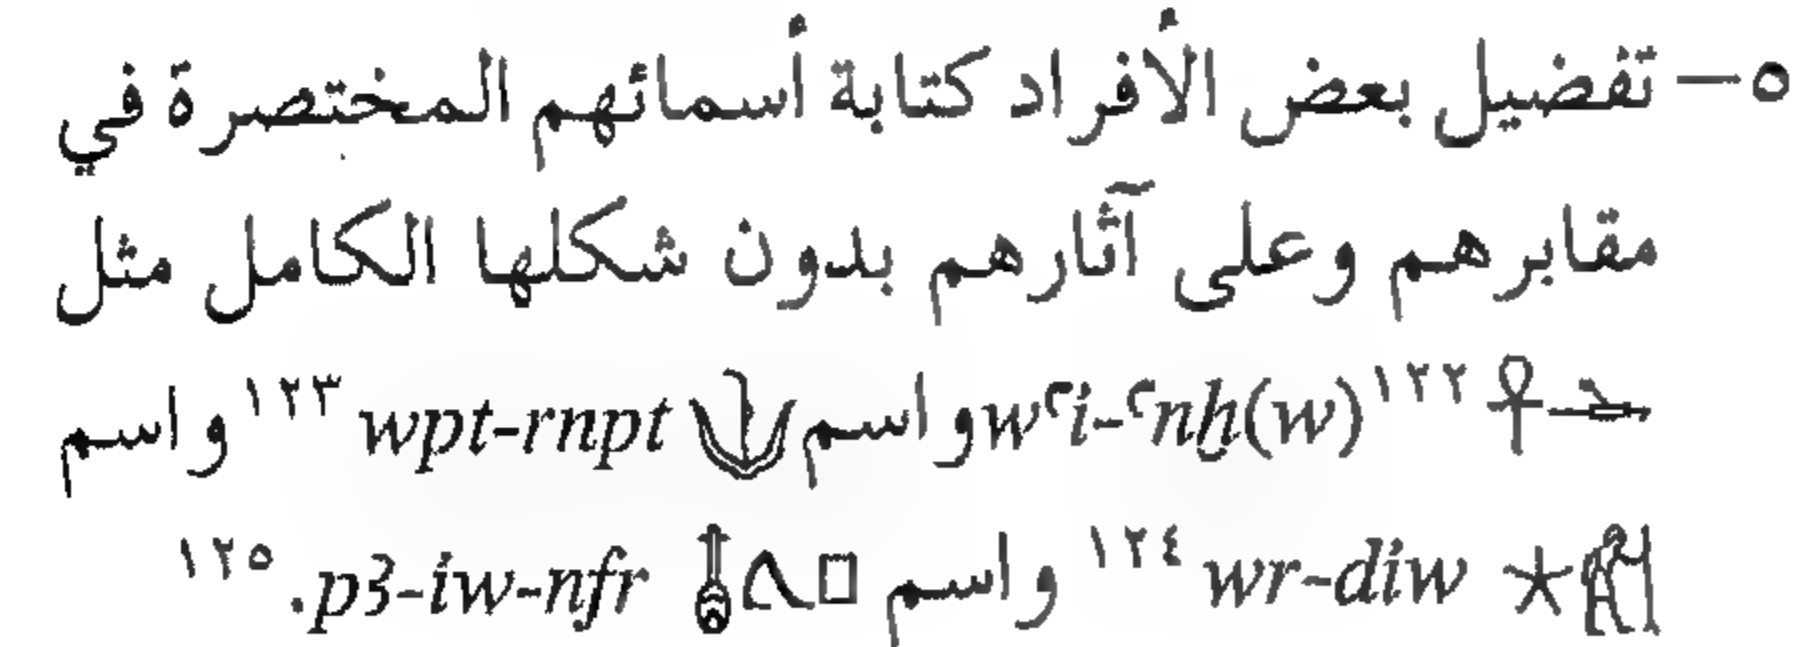 ٥– تفضيل بعض الأفراد كتابة أسمائهم المختصرة في
مقابرهم وعلى آثارهم بدون شكلها الكامل مثل
𓌡𓋹 ١٢٢ wꜥi-ꜥnḫ(w) واسم 𓄋 wpt-rnpt ١٢٣ واسم
𓀗𓇼 wr-diw ١٢٤ واسم 𓊪𓂻𓄤 p3-iw-nfr. ١٢٥